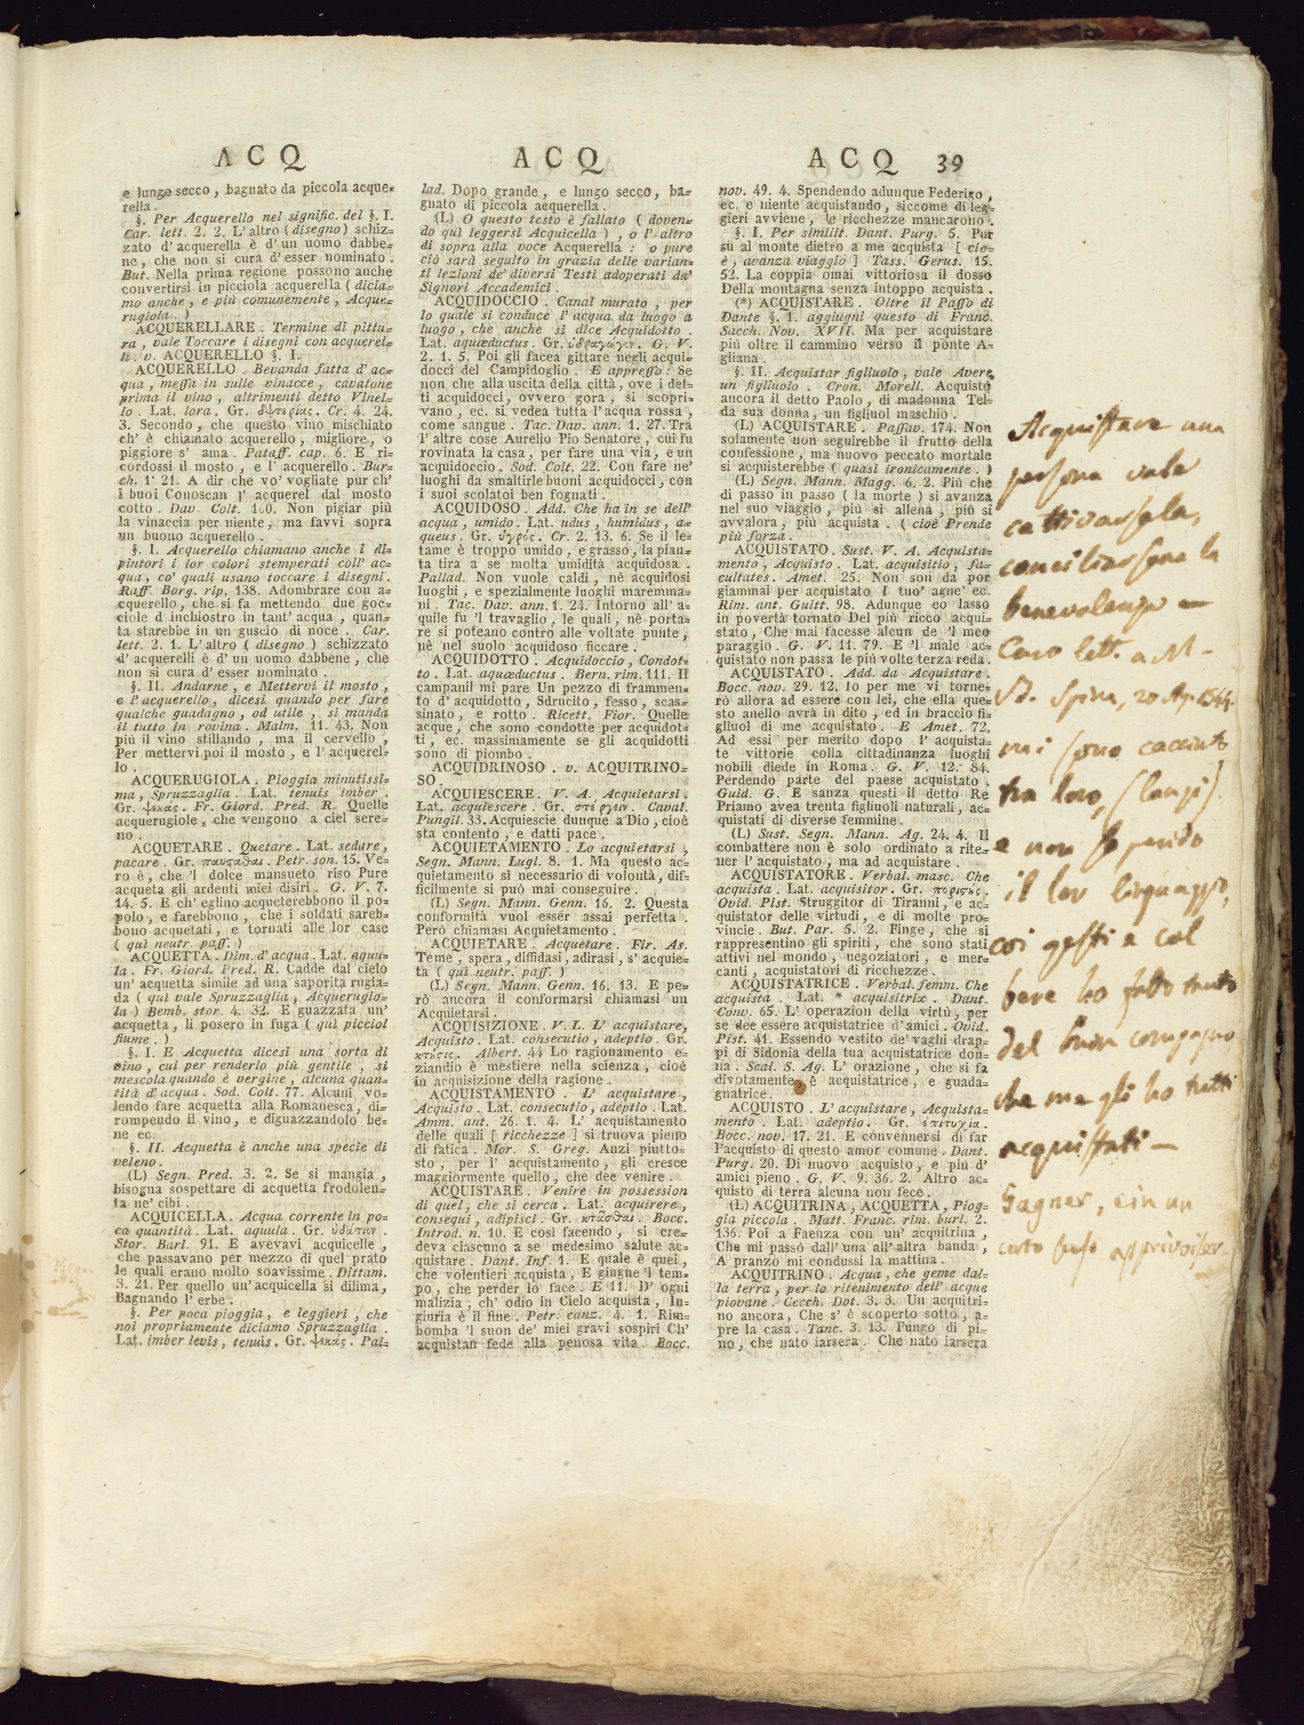 ACQ
e lungo secco, bagnato da piccola acque=
rella.
§. Per Acquerello nel signific. del §. I.
Car. lett. 2. 2. L'altro (disegno) schiz=
zato d'acquerella è d'un uomo dabbe=
ne, che non si cura d'esser nominato.
But. Nella prima regione possono anche
convertirsi in picciola acquerella (dicia=
mo anche, e più comunemente, Acque=
rugiola.)
ACQUERELLARE. Termine di pittu=
ra, vale Toccare i disegni con acquerel=
li. v. ACQUERELLO §. I.
ACQUERELLO. Bevanda fatta d'ac=
qua, messa in sulle vinacce, cavatone
prima il vino, altrimenti detto Vinel=
lo. Lat. lora. Gr. Cr. 4. 24.
3. Secondo, che questo vino mischiato
ch'è chiamato acquerello, migliore, o
piggiore s'ama. Pataff. cap. 6. E ri=
cordossi il mosto, e l'acquerello. Bur=
ch. 1. 21. A dir che vo' vogliate pur ch'
i buoi Conoscan l'acquerel dal mosto
cotto. Dav. Colt. 160. Non pigiar più
la vinaccia per niente, ma favvi sopra
un buono acquerello.
§. I. Acquerello chiamano anche i di=
pintori i lor colori stemperati coll'ac=
qua, co' quali usano toccare i disegni.
Raff. Borg. rip. 138. Adombrare con a=
cquerello, che si fa mettendo due goc=
ciole d'inchiostro in tant'acqua, quan=
ta starebbe in un guscio di noce. Car.
lett. 2. 1. L'altro (disegno) schizzato
d'acquerelli è d'un uomo dabbene, che
non si cura d'esser nominato.
§. II. Andarne, e Mettervi il mosto,
e l'acquerello, dicesi quando per fare
qualche guadagno, od utile, si manda
il tutto in rovina. Malm. 11. 43. Non
più il vino stillando, ma il cervello,
Per mettervi poi il mosto, e l'acquerel=
lo.
ACQUERUGIOLA. Pioggia minutissi=
ma, Spruzzaglia. Lat. tenuis imber.
Gr. ψεκάς. Fr. Giord. Pred. R. Quelle
acquerugiole, che vengono a ciel sere=
no.
ACQUETARE. Quetare. Lat. sedare,
pacare. Gr. παύεσθαι. Petr. son. 15. Ve=
ro è, che 'l dolce mansueto riso Pure
acqueta gli ardenti miei disiri. G. V. 7.
14. 5. E ch'eglino acqueterebbono il po=
polo, e farebbono, che i soldati sareb=
bono acquetati, e tornati alle lor case
(quì neutr. pass.)
ACQUETTA. Dim. d'acqua. Lat. aquu=
la. Fr. Giord. Pred. R. Cadde dal cielo
un'acquetta simile ad una saporita rugia=
da (quì vale Spruzzaglia, Acquerugio=
la) Bemb. stor. 4. 32. E guazzata un'
acquetta, li posero in fuga (quì picciol
fiume.)
§. I. E Acquetta dicesi una sorta di
vino, cui per renderlo più gentile, si
mescola quando è vergine, alcuna quan=
tità d'acqua. Sod. Colt. 77. Alcuni vo=
lendo fare acquetta alla Romanesca, di=
rompendo il vino, e diguazzandolo be=
ne ec.
§. II. Acquetta è anche una specie di
veleno.
(L) Segn. Pred. 3. 2. Se si mangia,
bisogna sospettare di acquetta frodolen=
ta ne' cibi.
ACQUICELLA. Acqua corrente in po=
ca quantità. Lat. aquula. Gr. ὑδάτιον.
Stor. Barl. 91. E avevavi acquicelle,
che passavano per mezzo di quel prato
le quali erano molto soavissime. Dittam.
3. 21. Per quello un'acquicella si dilima,
Bagnando l'erbe.
§. Per poca pioggia, e leggieri, che
noi propriamente diciamo Spruzzaglia.
Lat. imber levis, tenuis. Gr. ψεκάς. Pal=
ACQ
lad. Dopo grande, e lungo secco, ba=
gnato di piccola acquerella.
(L) O questo testo è fallato (doven=
do quì leggersi Acquicella), o l'altro
di sopra alla voce Acquerella: o pure
ciò sarà seguito in grazia delle varian=
ti lezioni de' diversi Testi adoperati da'
Signori Accademici.
ACQUIDOCCIO. Canal murato, per
lo quale si conduce l'acqua da luogo a
luogo, che anche si dice Acquidotto.
Lat. aquæductus. Gr. ὑδραγωγεῖον. G. V.
2. 1. 5. Poi gli facea gittare negli acqui=
docci del Campidoglio. E appresso: Se
non che alla uscita della città, ove i det=
ti acquidocci, ovvero gora, si scopri=
vano, ec. si vedea tutta l'acqua rossa,
come sangue. Tac. Dav. ann. 1. 27. Tra
l'altre cose Aurelio Pio Senatore, cui fu
rovinata la casa, per fare una via, e un
acquidoccio. Sod. Colt. 22. Con fare ne'
luoghi da smaltirle buoni acquidocci, con
i suoi scolatoi ben fognati.
ACQUIDOSO. Add. Che ha in se dell'
acqua, umido. Lat. udus, humidus, a=
queus. Gr. ὑγρός. Cr. 2. 13. 6. Se il le=
tame è troppo umido, e grasso, la pian=
ta tira a se molta umidità acquidosa.
Pallad. Non vuole caldi, nè acquidosi
luoghi, e spezialmente luoghi maremma=
ni. Tac. Dav. ann. 1. 24. Intorno all'a=
quile fu 'l travaglio, le quali, nè porta=
re si poteano contro alle voltate punte,
nè nel suolo acquidoso ficcare.
ACQUIDOTTO. Acquidoccio, Condot=
to. Lat. aquæductus. Bern. rim. 111. Il
campanil mi pare Un pezzo di frammen=
to d'acquidotto, Sdrucito, fesso, scas=
sinato, e rotto. Ricett. Fior. Quelle
acque, che sono condotte per acquidot=
ti, ec. massimamente se gli acquidotti
sono di piombo.
ACQUIDRINOSO. v. ACQUITRINO=
SO.
ACQUIESCERE. V. A. Acquietarsi.
Lat. acquiescere. Gr. στέργειν. Caval.
Pungil. 33. Acquiescie dunque a Dio, cioè
sta contento, e datti pace.
ACQUIETAMENTO. Lo acquietarsi,
Segn. Mann. Lugl. 8. 1. Ma questo ac=
quietamento sì necessario di volontà, dif=
ficilmente si può mai conseguire.
(L) Segn. Mann. Genn. 16. 2. Questa
conformità vuol essér assai perfetta.
Però chiamasi Acquietamento.
ACQUIETARE. Acquetare. Fir. As.
Teme, spera, diffidasi, adirasi, s'acquie=
ta (quì neutr. pass.)
(L) Segn. Mann. Genn. 16. 13. E pe=
rò ancora il conformarsi chiamasi un
Acquietarsi.
ACQUISIZIONE. V. L. L'acquistare,
Acquisto. Lat. consecutio, adeptio. Gr.
κτῆσις. Albert. 44 Lo ragionamento e=
ziandio è mestiere nella scienza, cioè
in acquisizione della ragione.
ACQUISTAMENTO. L'acquistare,
Acquisto. Lat. consecutio, adeptio. Lat.
Amm. ant. 26. 1. 4. L'acquistamento
delle quali [ricchezze] si truova pieno
di fatica. Mor. S. Greg. Anzi piutto=
sto, per l'acquistamento, gli cresce
maggiormente quello, che dee venire.
ACQUISTARE. Venire in possession
di quel, che si cerca. Lat. acquirere,
consequi, adipisci. Gr. κτᾶσθαι. Bocc.
Introd. n. 10. E così facendo, si cre=
deva ciascuno a se medesimo salute ac=
quistare. Dant. Inf. 1. E quale è quei,
che volentieri acquista, E giugne 'l tem=
po, che perder lo face. E 11. D'ogni
malizia, ch'odio in Cielo acquista, In=
giuria è il fine. Petr. canz. 4. 1. Rim=
bomba 'l suon de' miei gravi sospiri Ch'
acquistan fede alla penosa vita. Bocc.
ACQ 39
nov. 49. 4. Spendendo adunque Federigo,
ec. e niente acquistando, siccome di leg=
gieri avviene, le ricchezze mancarono.
§. I. Per similit. Dant. Purg. 5. Pur
sù al monte dietro a me acquista [cio=
è, avanza viaggio] Tass. Gerus. 15.
52. La coppia omai vittoriosa il dosso
Della montagna senza intoppo acquista.
(*) ACQUISTARE. Oltre il Passo di
Dante §. 1. aggiugni questo di Franc.
Sacch. Nov. XVII. Ma per acquistare
più oltre il cammino verso il ponte A=
gliana.
§. II. Acquistar figliuolo, vale Avere
un figliuolo. Cron. Morell. Acquistò
ancora il detto Paolo, di madonna Tel=
da sua donna, un figliuol maschio.
(L) ACQUISTARE. Passav. 174. Non
solamente non seguirebbe il frutto della
confessione, ma nuovo peccato mortale
si acquisterebbe (quasi ironicamente.)
(L) Segn. Mann. Magg. 6. 2. Più che
di passo in passo (la morte) si avanza
nel suo viaggio, più si allena, più si
avvalora, più acquista. (cioè Prende
più forza.
ACQUISTATO. Sust. V. A. Acquista=
mento, Acquisto. Lat. acquisitio, fa=
cultates. Amet. 25. Non son da por
giammai per acquistato I tuo' agne' ec.
Rim. ant. Guitt. 98. Adunque eo lasso
in povertà tornato Del più ricco acqui=
stato, Che mai facesse alcun de 'l meo
paraggio. G. V. 11. 79. E 'l male ac=
quistato non passa le più volte terza reda.
ACQUISTATO. Add. da Acquistare.
Bocc. nov. 29. 12. Io per me vi torne=
rò allora ad essere con lei, che ella que=
sto anello avrà in dito, ed in braccio fi=
gliuol di me acquistato. E Amet. 72.
Ad essi per merito dopo l'acquista=
te vittorie colla cittadinanza luoghi
nobili diede in Roma. G. V. 12. 84.
Perdendo parte del paese acquistato.
Guid. G. E sanza questi il detto Re
Priamo avea trenta figliuoli naturali, ac=
quistati di diverse femmine.
(L) Sust. Segn. Mann. Ag. 24. 4. Il
combattere non è solo ordinato a rite=
ner l'acquistato, ma ad acquistare.
ACQUISTATORE. Verbal. masc. Che
acquista. Lat. acquisitor. Gr. ποριστής.
Ovid. Pist. Struggitor di Tiranni, e ac=
quistator delle virtudi, e di molte pro=
vincie. But. Par. 5. 2. Finge, che si
rappresentino gli spiriti, che sono stati
attivi nel mondo, negoziatori, e mer=
canti, acquistatori di ricchezze.
ACQUISTATRICE. Verbal. femm. Che
acquista. Lat. * acquisitrix. Dant.
Conv. 65. L'operazion della virtù, per
se dee essere acquistatrice d'amici. Ovid.
Pist. 41. Essendo vestito de' vaghi drap=
pi di Sidonia della tua acquistatrice don=
na. Scal. S. Ag. L'orazione, che si fa
divotamente, è acquistatrice, e guada=
gnatrice.
ACQUISTO. L'acquistare, Acquista=
mento. Lat. adeptio. Gr. ἐπιτυχία.
Bocc. nov. 17. 21. E convennersi di far
l'acquisto di questo amor comune. Dant.
Purg. 20. Di nuovo acquisto, e più d'
amici pieno. G. V. 9. 36. 2. Altro ac=
quisto di terra alcuna non fece.
(L) ACQUITRINA, ACQUETTA, Piog=
gia piccola. Matt. Franc. rim. burl. 2.
136. Poi a Faenza con un'acquitrina,
Che mi passò dall'una all'altra banda,
A pranzo mi condussi la mattina.
ACQUITRINO. Acqua, che geme dal=
la terra, per lo ritenimento dell'acque
piovane. Cecch. Dot. 3. 3. Un acquitri=
no ancora, Che s'è scoperto sotto, a=
pre la casa. Tanc. 3. 13. Fungo di pi=
no, che nato iarsera. Che nato iarsera
Acquistare una
persona vale
cattivarsela,
conciliarsene la
benevolenza —
Caro lett. a M.
B. Spina, 20 Ag. 1544.
mi sono cacciato
tra loro, (lanzi)
e non sapendo
il lor linguaggio,
coi gesti e col
bere ho fatto tanto
del buon compagno
che me gli ho tutti
acquistati —
Gagner, e in un
certo senso apprivoiser